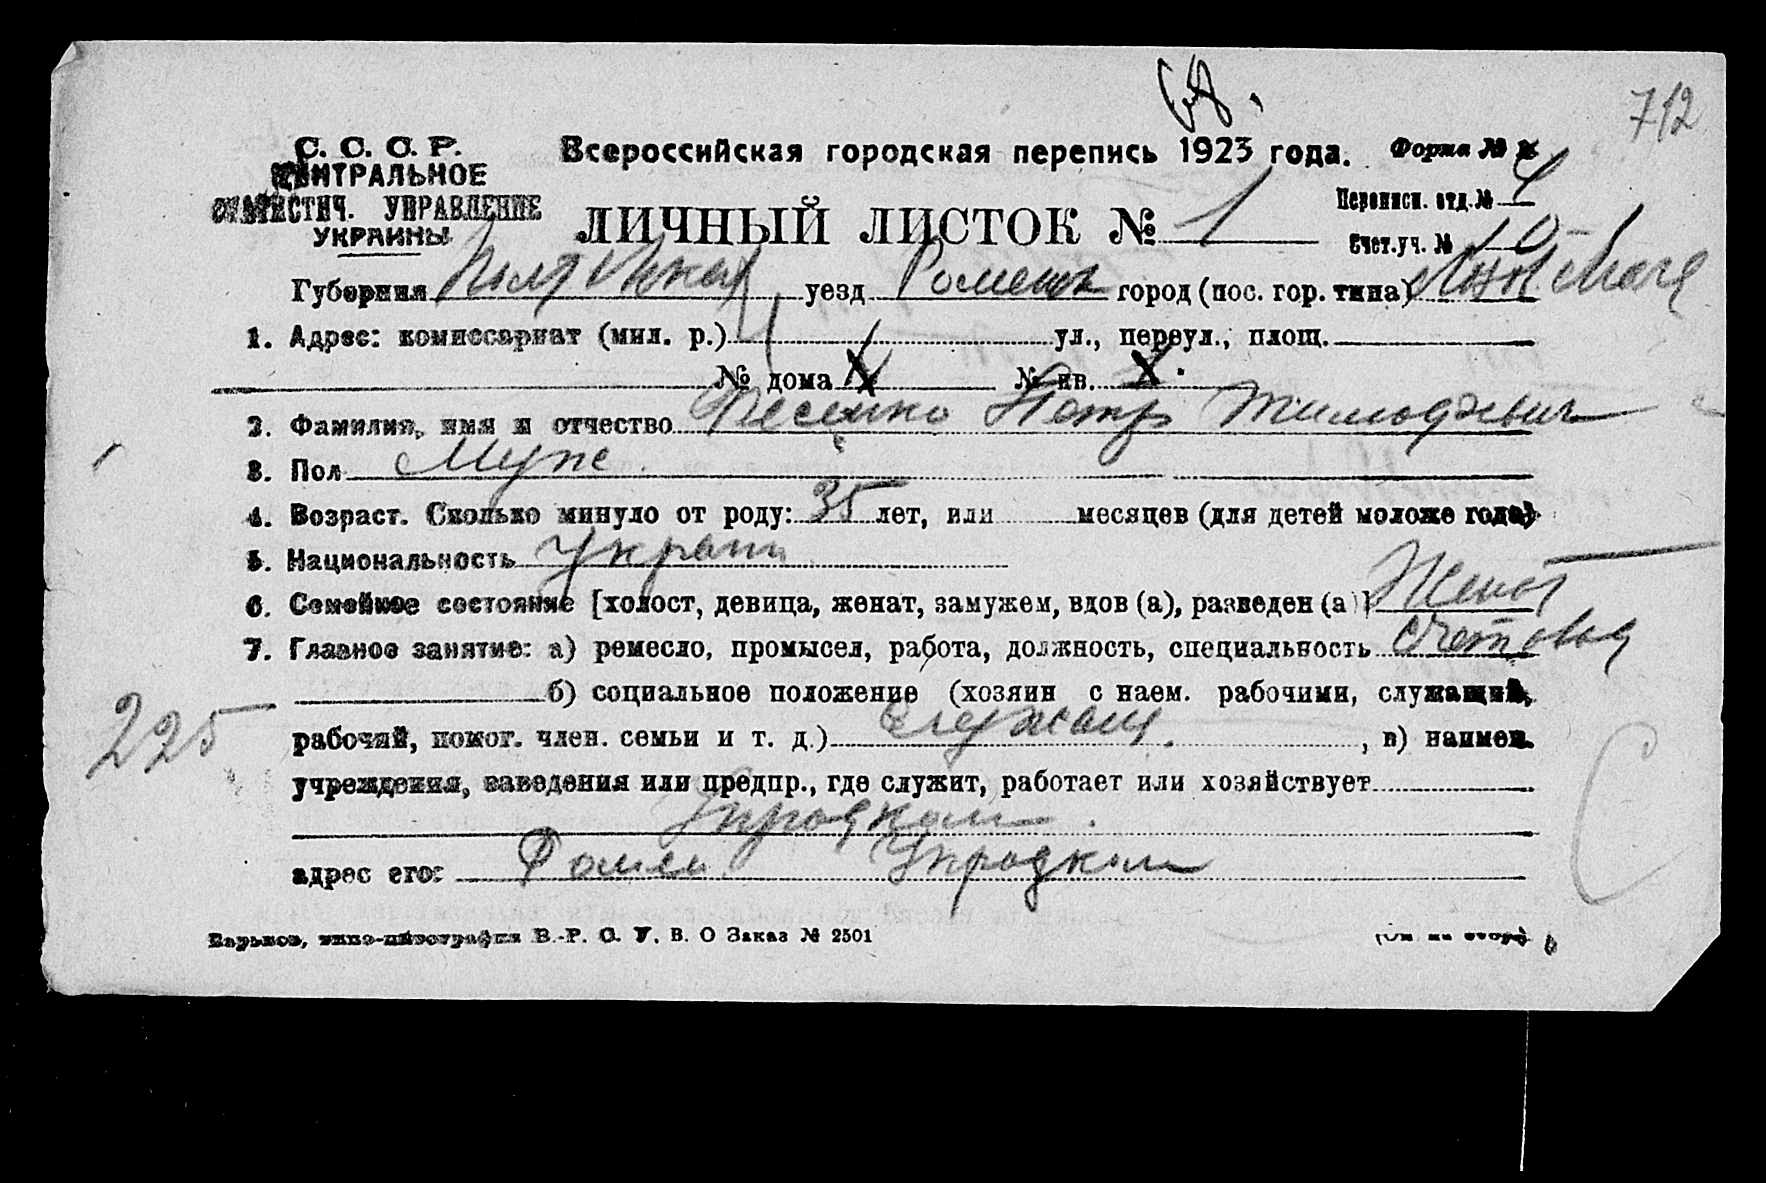 712
С. С. С. Р. Всероссийская городская перепись 1923 года. Форма №
ЦЕНТРАЛЬНОЕ
СТАТИСТИЧ. УПРАВЛЕНИЕ
УКРАИНЫ
ЛИЧНЫЙ ЛИСТОК № 1
Переписн. отд. № 4
Счет.уч. № 10
Губерния Полтавская уезд Роменск город (пос. гор. типа)
1. Адрес: комиссариат (мил. р.) ул., переул., площ.
№ дома № кв.
2. Фамилия, имя и отчество Петр Тимофеевич
3. Пол Муж.
4. Возраст. Сколько минуло от роду: 35 лет, или месяцев (для детей моложе года)
5. Национальность Украин
6. Семейное состояние [холост, девица, женат, замужем, вдов (а), разведен (а)] Женат
7. Главное занятие: а) ремесло, промысел, работа, должность, специальность Счетовод
б) социальное положение (хозяин с наем. рабочими, служащий,
рабочий, помог. член. семьи и т. д.) Служащ. , в) наимен.
225
учреждения, заведения или предпр., где служит, работает или хозяйствует
Упродком.
адрес его: Ромен Упродком
Харьков, типо-литография В.-Р. С. У. В. О Заказ № 2501